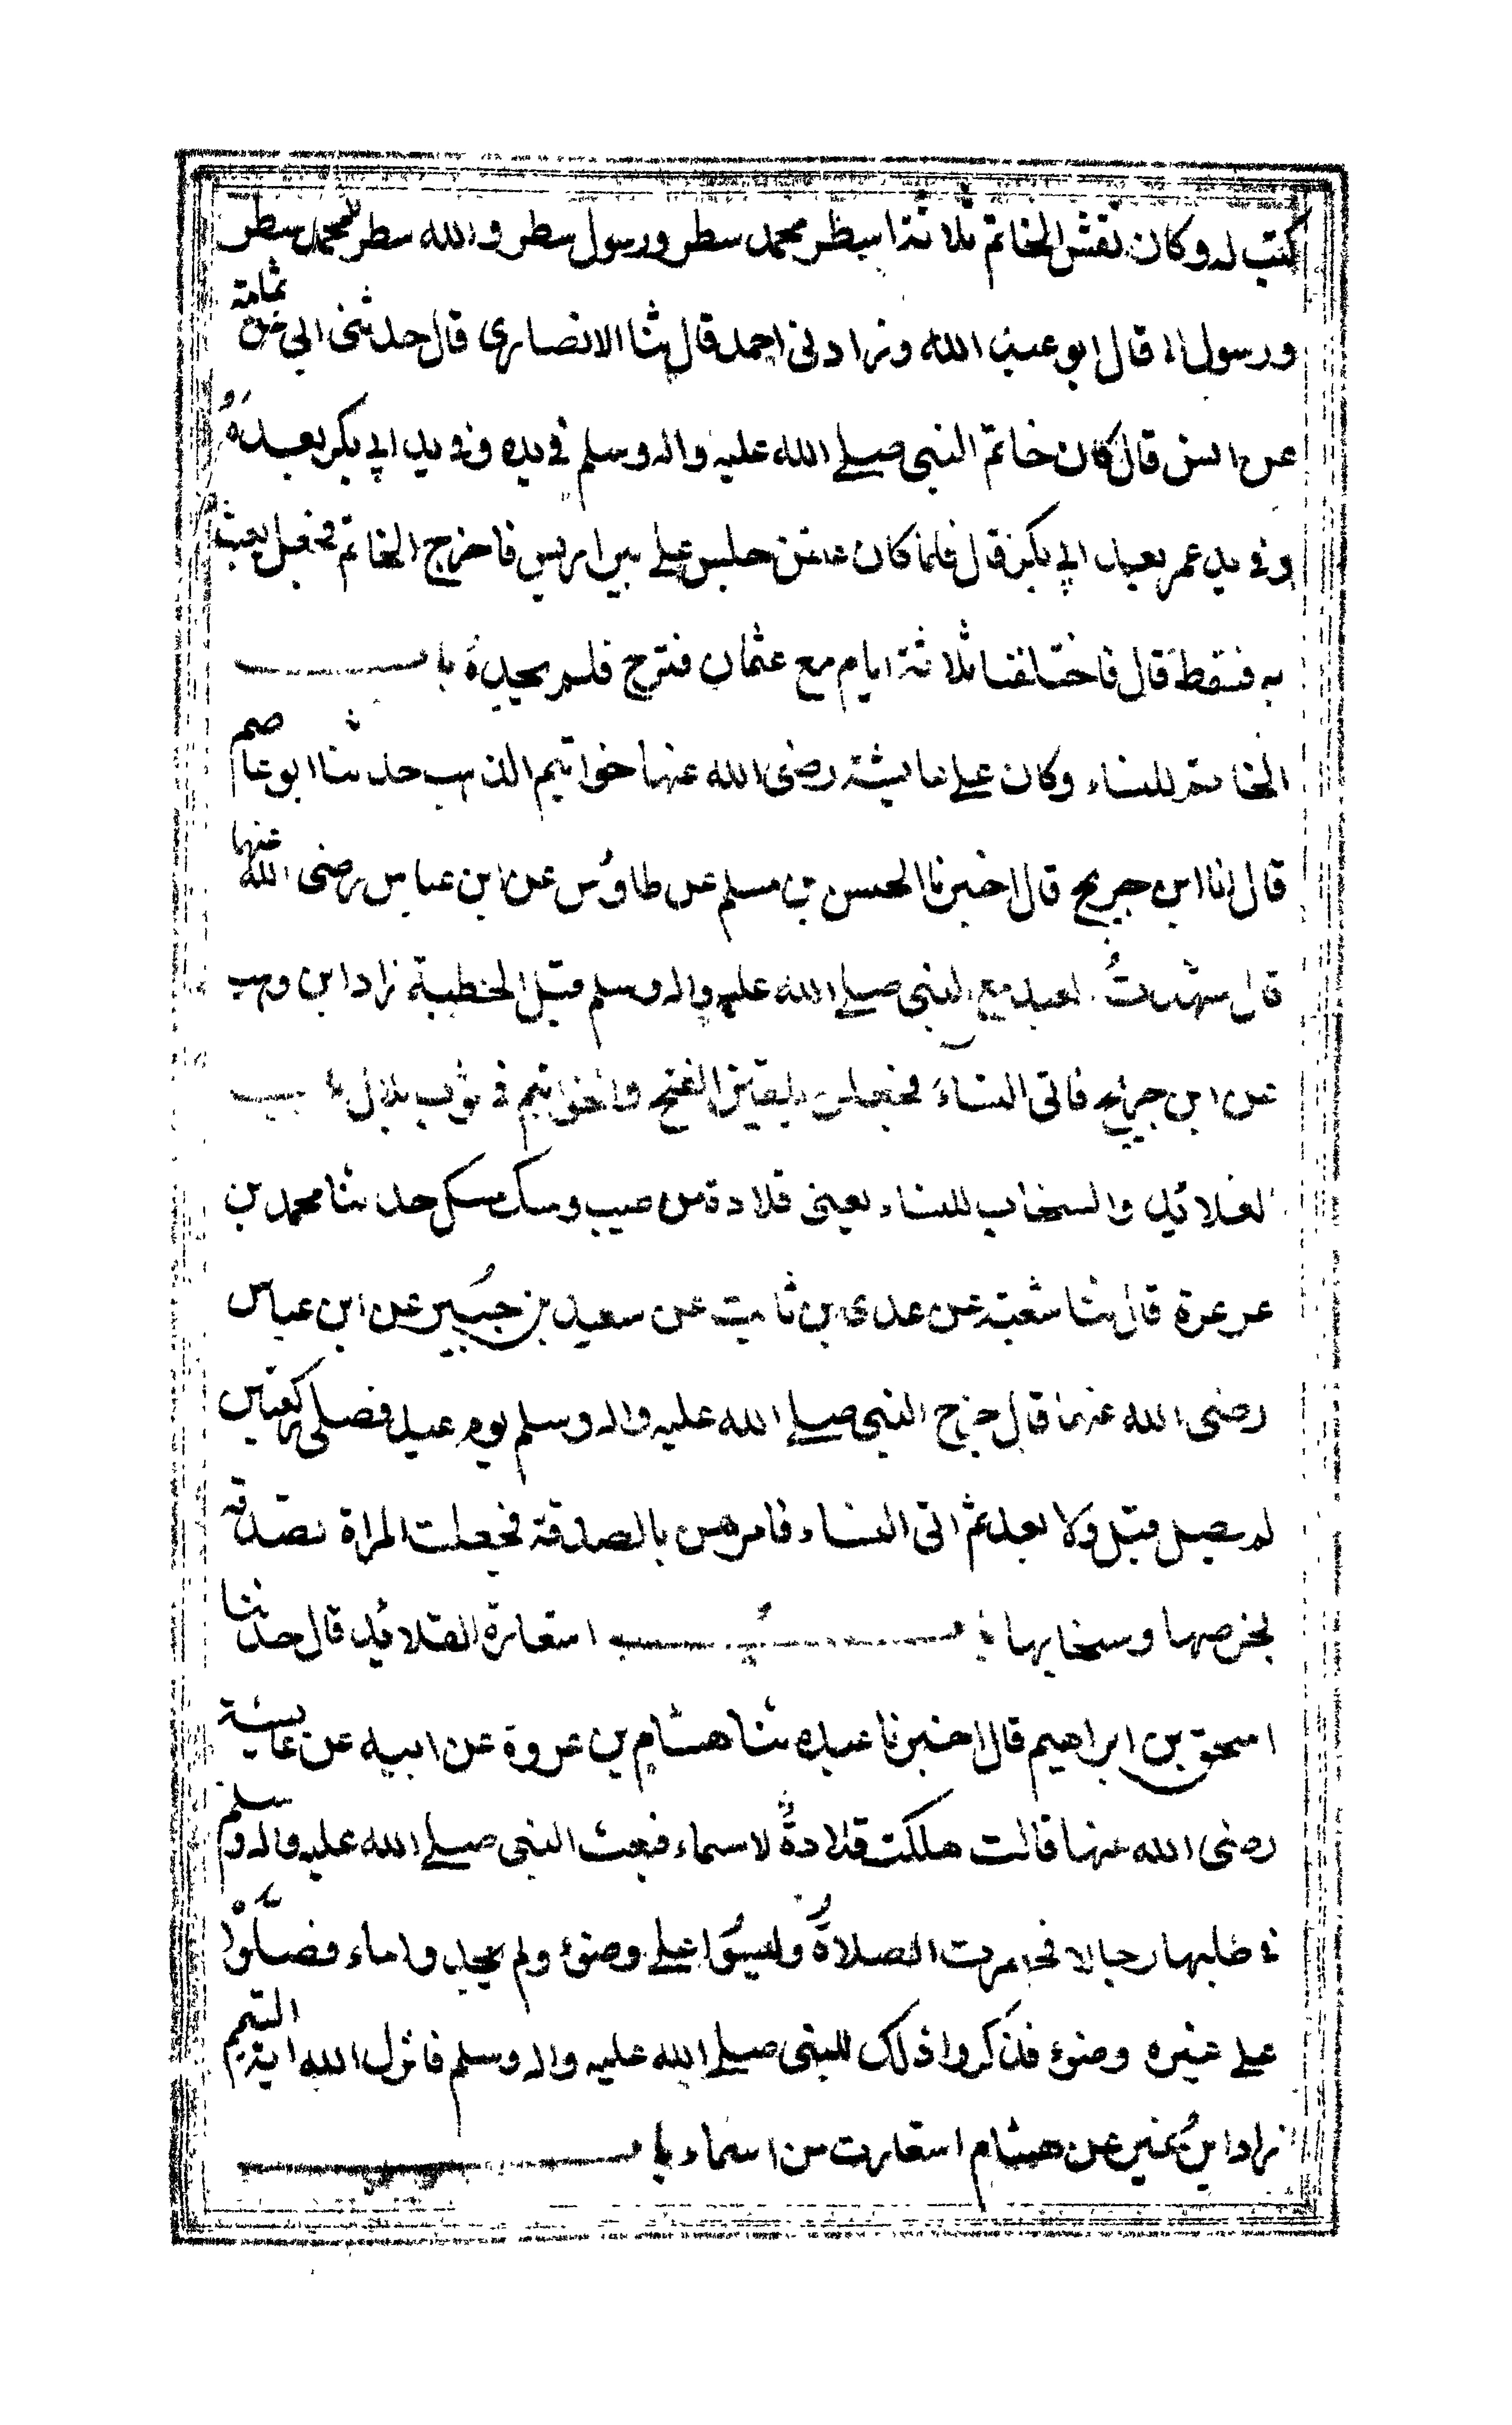 كتب له وكان نقش الخاتم ثلاثة اسطر محمد سطر ورسول سطر والله سطر لمحمد سطر
ورسول الا قال ابو عبد الله وزادني احمد قال ثنا الانصاري قال حدثني ابي عن ثمامة
عن انس قال كان خاتم النبي صلى الله عليه واله وسلم في يده وفي يد ابي بكر بعده
وفي يد عمر بعد ابي بكر قال فلما كان عثمن جلس على بير اريس فاخرج الخاتم فجعل يعبث
به فسقط قال فاختلفنا ثلاثة ايام مع عثمان فنزح فلم يجده باب
الخاتم للنساء وكان على عايشة رضى الله عنها خواتيم الذهب حدثنا ابو عاصم
قال انا ابن جريج قال اخبرنا الحسن بن مسلم عن طاوس عن ابن عباس رضى الله عنهما
قال شهدت العيد مع النبي صلى الله عليه واله وسلم قبل الخطبة زاد ابن وهب
عن ابن جريج فاتى النساء فجعلن يلقين الفتخ والخواتيم في ثوب بلال باب
القلائد والسخاب للنساء يعني قلادة من طيب وسك مسك حدثنا محمد بن
عرعرة قال ثنا شعبة عن عدى بن ثابت عن سعيد بن جبير عن ابن عباس
رضى الله عنهما قال خرج النبي صلى الله عليه واله وسلم يوم عيد فصلى ركعتين
لم يصل قبل ولا بعد ثم اتى النساء فامرهن بالصدقة فجعلت المراة تصدق
بخرصها وسخابها باب استعارة القلائد قال حدثنا
اسحق بن ابراهيم قال اخبرنا عبده ثنا هشام بن عروة عن ابيه عن عايشة
رضى الله عنها قالت هلكت قلادة لاسماء فبعث النبي صلى الله عليه واله وسلم
في طلبها رجالا فحضرت الصلاة وليسوا على وضوء ولم يجدوا ماء فصلوا
على غير وضوء فذكروا ذلك للنبي صلى الله عليه واله وسلم فانزل الله اية التيمم
زاد ابن نمير عن هشام استعارت من اسماء باب